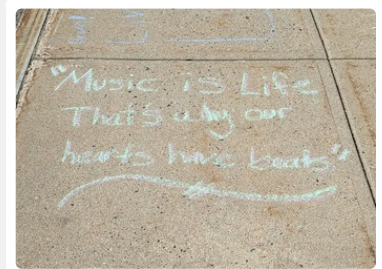 "Music is Life
That's why our
hearts have beats"